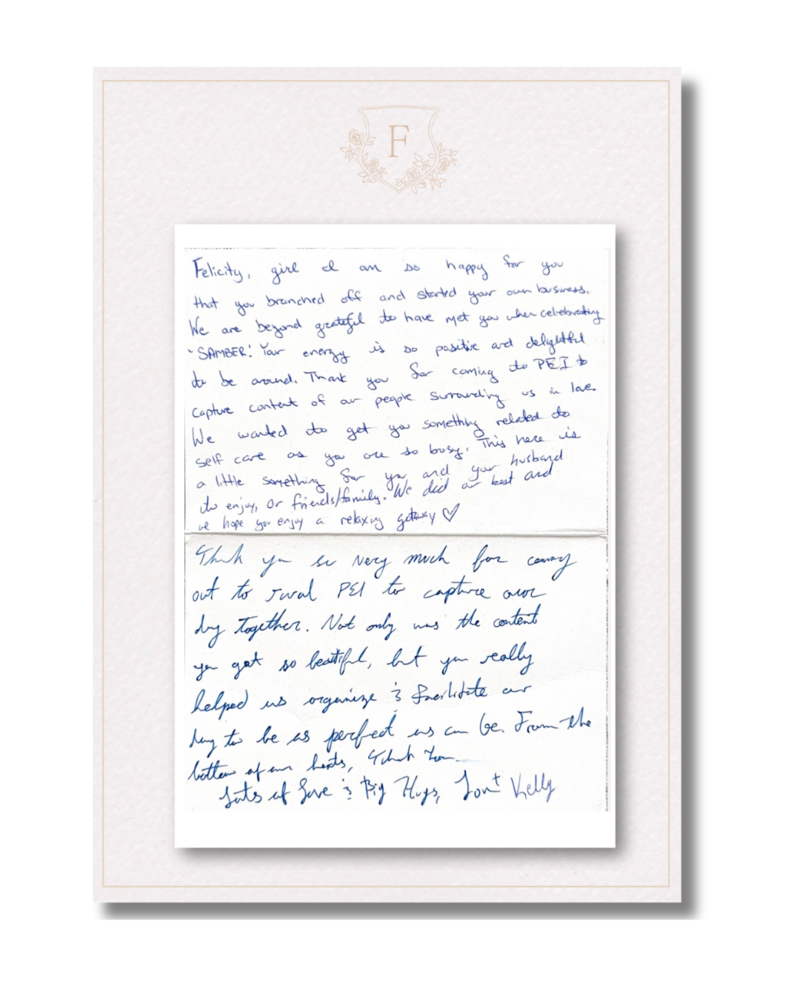 F
Felicity, girl I am so happy for you
that you branched off and started your own business.
We are beyond grateful to have met you when celebrating
"SAMBER." Your energy is so positive and delightful
to be around. Thank you for coming to PEI to
capture content of our people surrounding us in love.
We wanted to get you something related to
self care as you are so busy. This here is
a little something for you and your husband
to enjoy, or friends/family. We did our best and
we hope you enjoy a relaxing getaway ♡
Thank you so very much for coming
out to rural PEI to capture our
day together. Not only was the content
you got so beautiful, but you really
helped us organize & facilitate our
day to be as perfect as can be. From the
bottom of our hearts, Thank You.
Lots of Love & Big Hugs, + Kelly